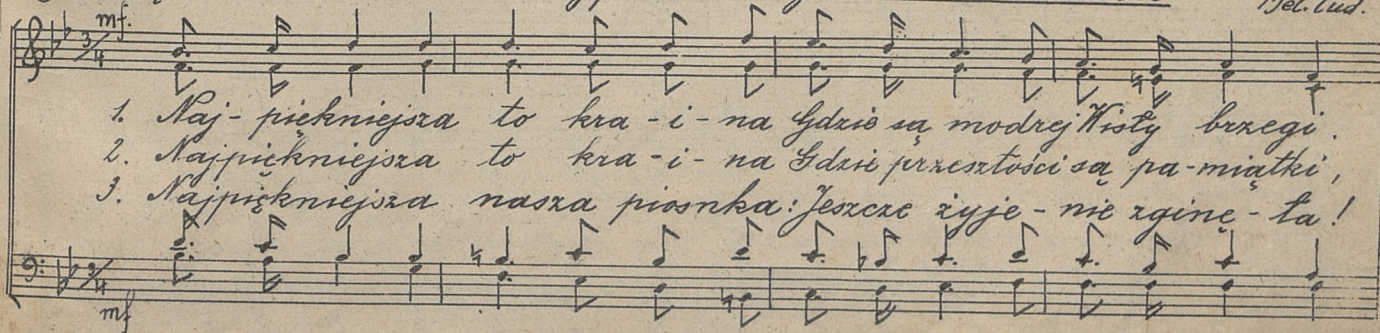 mf.
3/4
1. Naj-piękniejsza to kra-i-na Gdzie są modrej Wisły brzegi.
2. Najpiękniejsza to kra-i-na Gdzie przeszłości są pa-miątki,
3. Najpiękniejsza nasza piosnka: Jeszcze żyje-nie zginę-ła!
3/4
mf